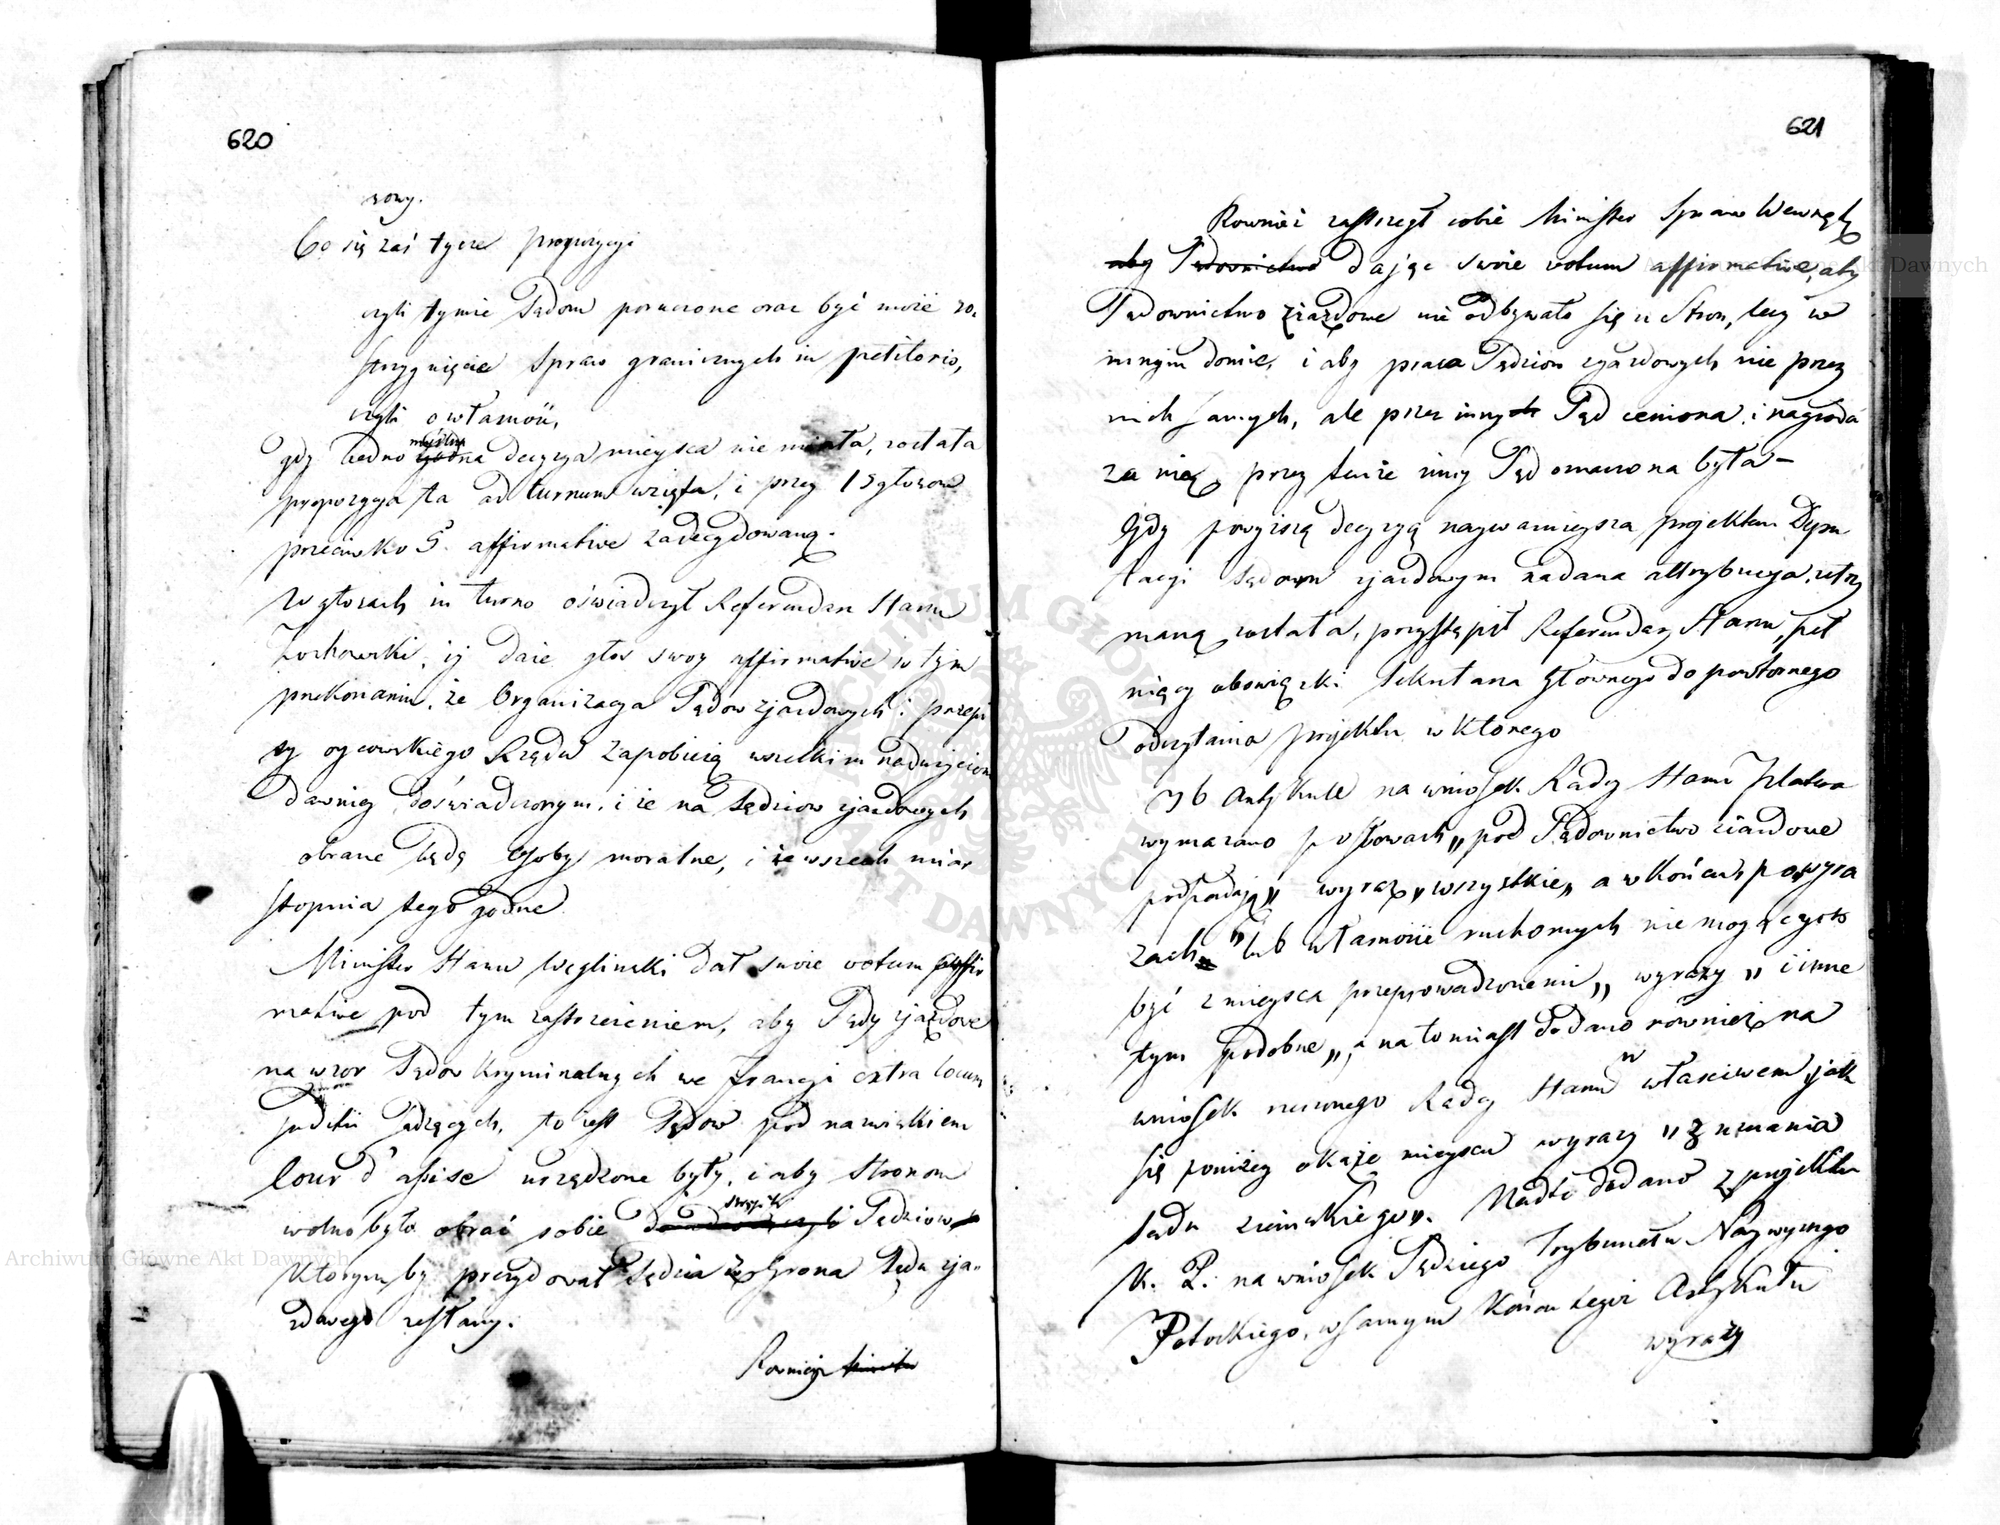 620
rony.
Co się zaś tycze propozycyi
czyli tymże Sądom poruczone oraz być może ro„
strzygnięcie Spraw granicznych in petitorio,
czyli o własność,
gdy jedno myślna decyzya mieysca nie miała, została
propozycya ta ad turnum wzięta, i przez 15 głosów
przeciwko 5. affirmative zadecydowaną.
W głosach in turno oświadczył Referendarz Stanu
Zochowski, iż daie głos swoy affirmative w tym
przekonaniu, że Organizacya Sądow zjazdowych i przepi
sy oycowskiego Rządu zapobieżą wszelkim nadużyciom
dawniey doświadczonym, i że na Sędziow zjazdowych
obrane będą Osoby moralne, i ze wszech miar
stopnia tego godne
Minister Stanu Węglinski dał swoie votum affir
mative pod tym zastrzeżeniem, aby Sądy zjazdowe
na wzor Sądow Kryminalnych we Francyi extra locum
Juditii Sądzących, to iest Sądow pod nazwiskiem
Cour d'assise urządzone były, i aby Stronom
wolno było obrać sobie Sędziow
Ktorym by prezydował Sędzia z Grona Sądu zja„
zdowego zesłany.
Rownież
621
Rownież zastrzegł sobie Minister Spraw Wewnętz
aby Sądownictwo dając swoie votum affirmative, aby
Sądownictwo zjazdowe nie odbywało się u Stron, lecz w
innym domie, i aby praca Sędziow zjazdowych nie przez
nich samych, ale przez inny Sąd ceniona, i nagroda
za nię przez tenże inny Sąd oznaczona była —
Gdy powyższą decyzyą nayważnieysza projektem Depu
tacyi Sądom zjazdowym nadana attrybucya utrzy
maną została, przystąpił Referendarz Stanu, peł
niący obowiązki Sekretarza Głównego do powtórnego
odczytania projektu w ktorego
76 Artykule na wniosek Rady Stanu Platera
wymazano po słowach „pod Sądownictwo zjazdowe
podpadają„ wyraz „wszystkie„ a w końcu po wyra
zach „lub własności ruchomych nie mogących
być z mieysca przeprowadzonemi„ wyrazy „i inne
tym podobne„, a natomiast dodano również na
wniosek rzeczonego Radcy Stanu w właściwem jak
się poniżey okaże mieyscu wyrazy „z uznania
Sądu ziemskiego„. Nadto dodano z projektu
K. P. na wniosek Sędziego Trybunału Naywyższego
Potockiego, w samym końcu tegoż Artykułu
wyrazy
Archiwum Główne Akt Dawnych